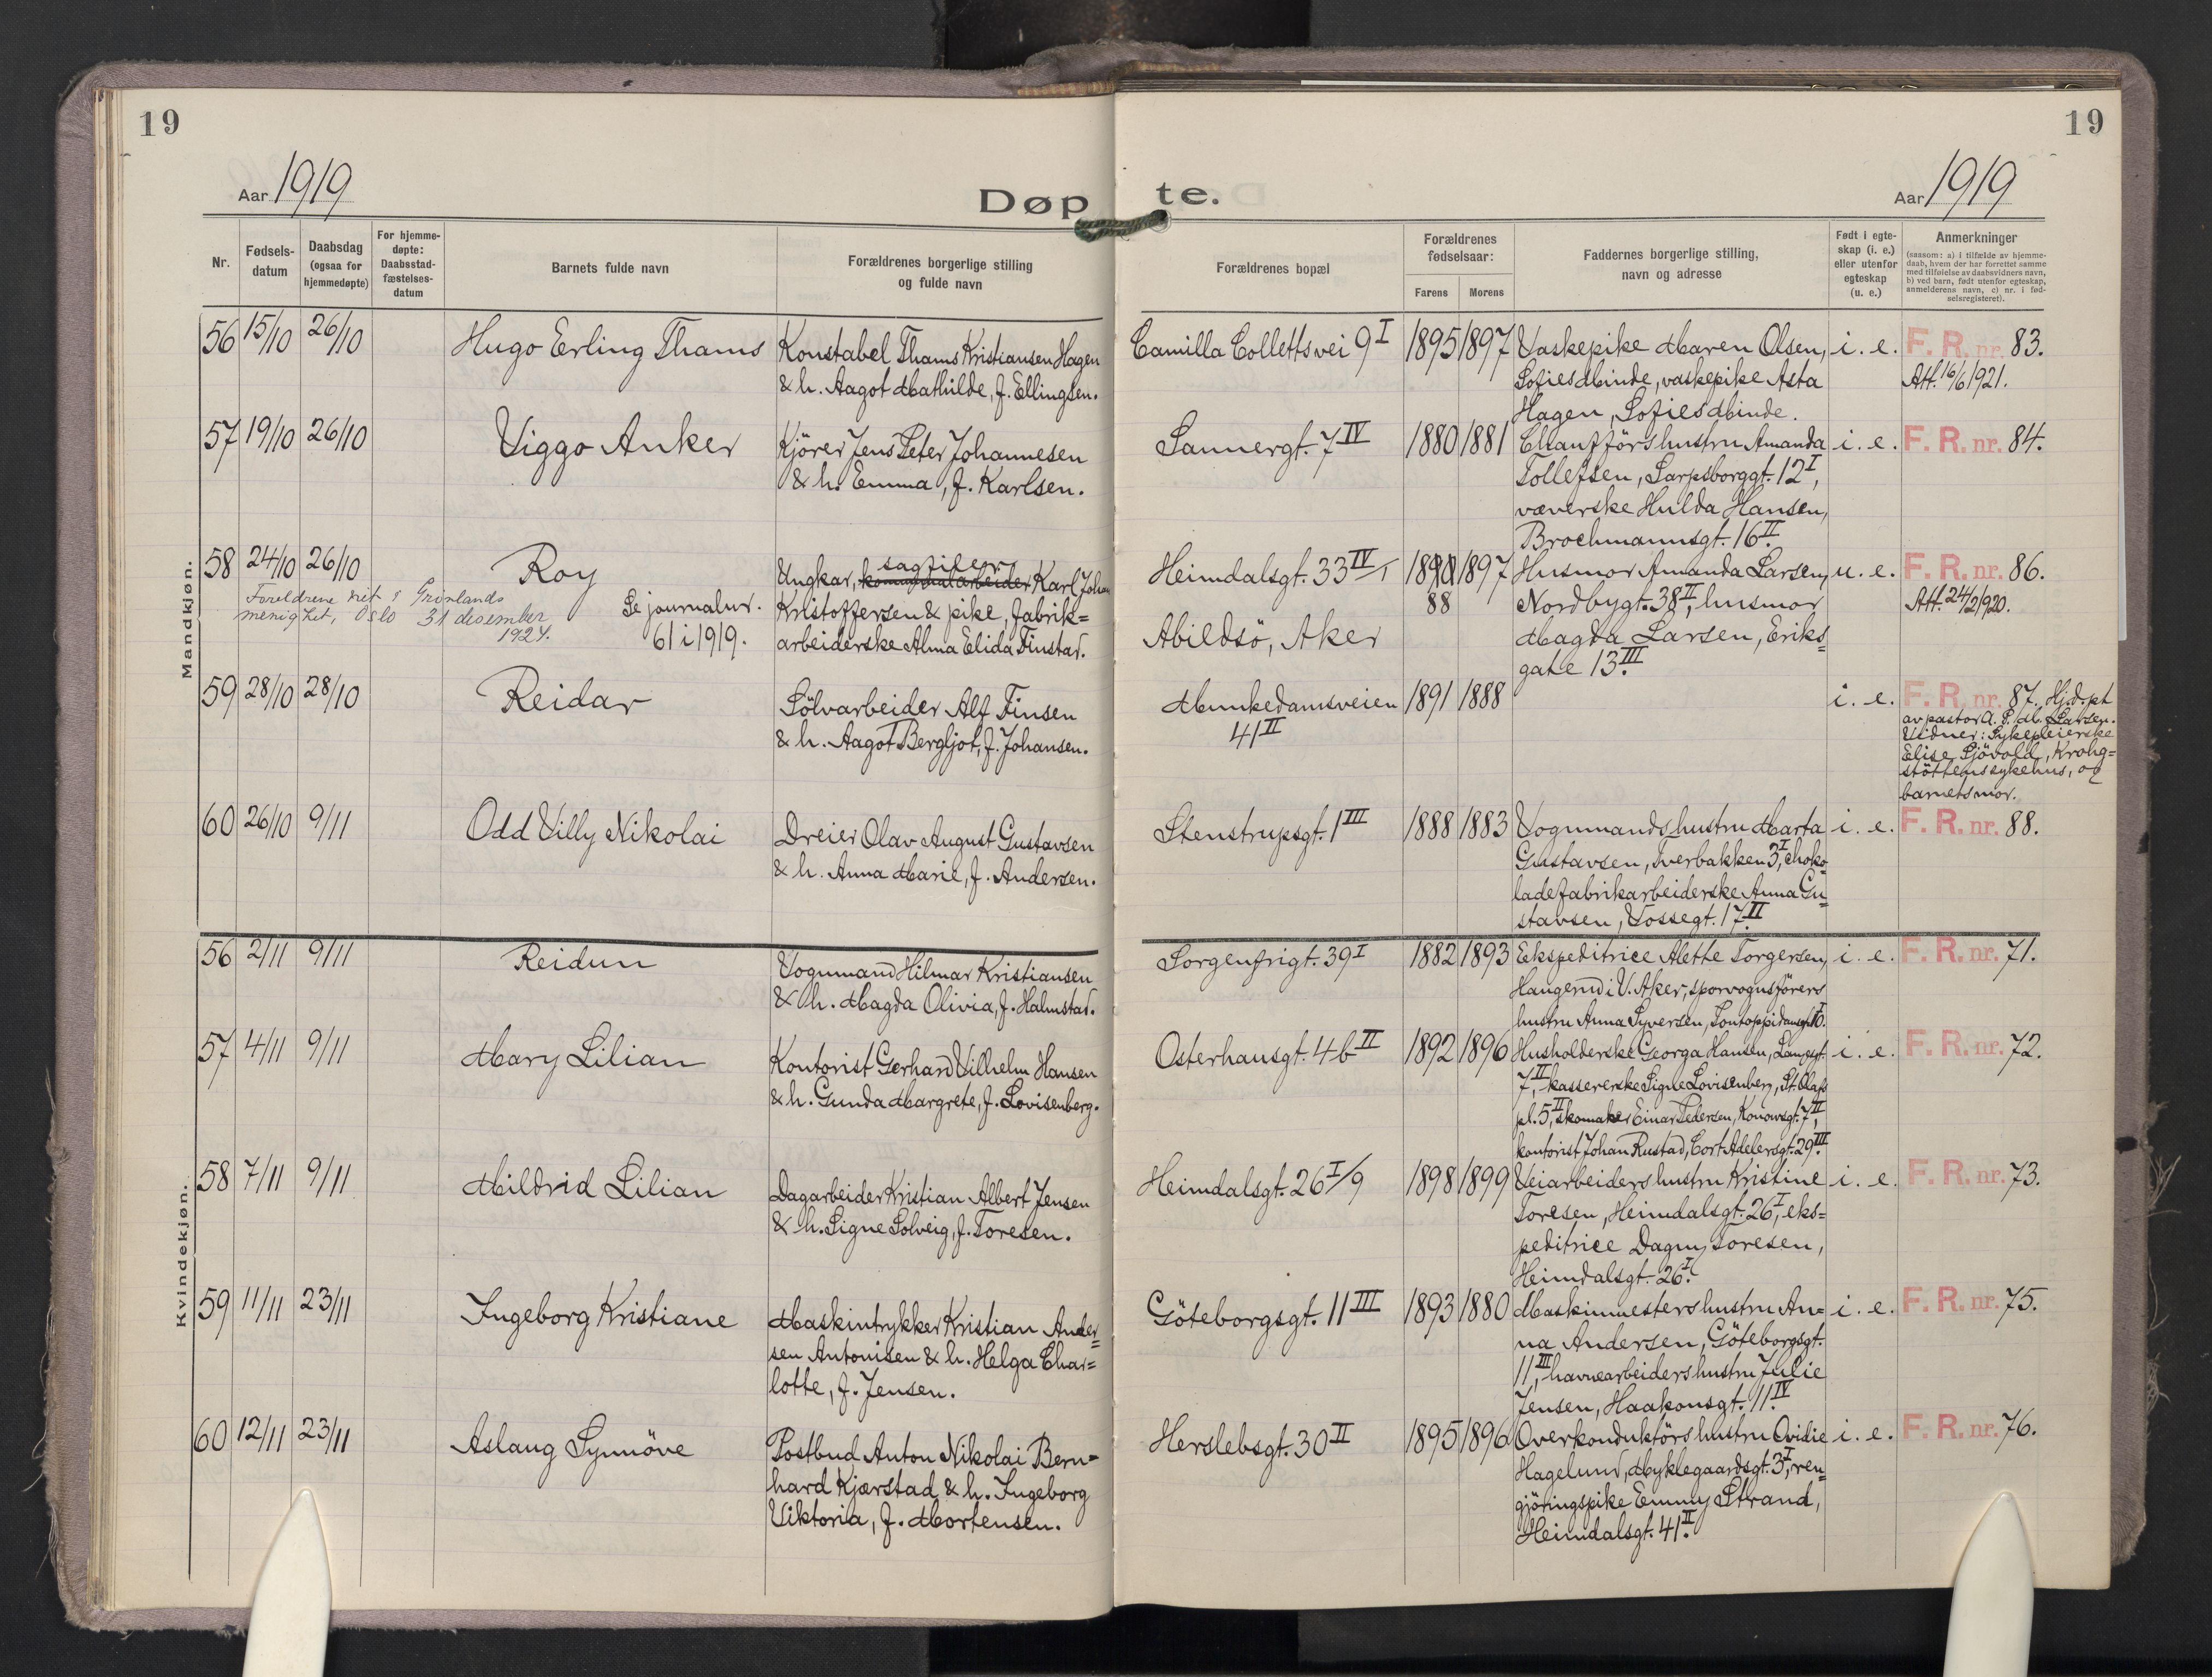 19
19
Aar 1919
Døpte.
Aar 1919
Nr.
Fødsels-
datum
Daabsdag
(ogsaa for
hjemmedøpte)
For hjemme-
døpte:
Daabsstad-
fæstelses-
datum
Barnets fulde navn
Forældrenes borgerlige stilling
og fulde navn
Forældrenes bopæl
Forældrenes
fødselsaar:
Farens
Morens
Faddernes borgerlige stilling,
navn og adresse
Født i egte-
skap (i. e.)
eller utenfor
egteskap
(u. e.)
Anmerkninger
(saasom: a) i tilfælde av hjemme-
daab, hvem der har forrettet samme
med tilføielse av daabsvidners navn,
b) ved barn, født utenfor egteskap,
anmelderens navn, c) nr. i fød-
selsregisteret).
Mandkjøn.
56 15/10 26/10 Hugo Erling Thams
Konstabel Thams Kristiansen Hagen
& h. Aagot Mathilde, f. Ellingsen.
Camilla Collettsvei 9 I
1895 1897
Vaskepike Maren Olsen,
Sofies Minde, vaskepike Asta
Hagen, Sofies Minde.
i. e.
F. R. nr. 83.
Att. 16/6 1921.
57 19/10 26/10 Viggo Anker
Kjörer Jens Peter Johannesen
& h. Emma, f. Karlsen.
Sannergt. 7 IV
1880 1881
Chaufförs hustru Amanda
Tollefsen, Sarpsborggt. 12 I,
væverske Hulda Hansen,
Brochmannsgt. 16 II.
i. e.
F. R. nr. 84.
58 24/10 26/10 Roy
Foreldrene viet i Grönlands
menighet, Oslo 31 desember
1924.
Se journalnr.
61 i 1919.
sagfiler
Ungkar, Karl Johan
Kristoffersen & pike, fabrik=
arbeiderske Alma Elida Finstad.
Heimdalsgt. 33 IV/I
Abildsö, Aker
88
1897
Husmor Amanda Larsen,
Nordbygt. 38 II, husmor
Magda Larsen, Eriks=
gate 13 III.
u. e.
F. R. nr. 86.
Att. 24/2 1920.
59 28/10 28/10 Reidar
Sölvarbeider Alf Finsen
& h. Aagot Bergljot, f. Johansen.
Munkedamsveien
41 II
1891 1888
i. e.
F. R. nr. 87. Hj.d.pt
av pastor A. P. M. Larsen.
Vidner: Sykepleierske
Elise Sjövold, Krohg=
stöttens sykehus, og
barnets mor.
60 26/10 9/11 Odd Villy Nikolai
Dreier Olav August Gustavsen
& h. Anna Marie, f. Andersen.
Stenstrupsgt. 1 III
1888 1883
Vognmands hustru Marta
Gustavsen, Tverbakken 3 I, choko=
ladefabrikarbeiderske Anna Gu=
stavsen, Vossegt. 17 II
i. e.
F. R. nr. 88.
Kvindekjøn.
56 2/11 9/11 Reidun
Vognmand Hilmar Kristiansen
& h. Magda Olivia, f. Halmstad.
Sorgenfrigt. 39 I
1882 1893
Ekspeditrice Alette Torgersen,
Haugerud i V. Aker, sporvognsförers
hustru Anna Syversen, Pontoppidansgt. 10 I.
i. e.
F. R. nr. 71.
57 4/11 9/11 Mary Lilian
Kontorist Gerhard Vilhelm Hansen
& h. Gunda Margrete, f. Lovisenberg.
Osterhausgt. 4b II
1892 1896
Husholderske Georga Hansen, Langesgt.
7 II, kassererske Signe Lovisenberg, St. Olafs
pl. 5 II, skomaker Einar Pedersen, Konowsgt. 7 II,
kontorist Johan Rustad, Cort Adelersgt. 29 III.
i. e.
F. R. nr. 72.
58 7/11 9/11 Mildrid Lilian
Dagarbeider Kristian Albert Jensen
& h. Signe Solveig, f. Toresen.
Heimdalsgt. 26 I/9
1898 1899
Veiarbeiders hustru Kristine
Toresen, Heimdalsgt. 26 I, eks=
peditrice Dagny Toresen,
Heimdalsgt. 26 I.
i. e.
F. R. nr. 73.
59 11/11 23/11 Ingeborg Kristiane
Maskintrykker Kristian Ander=
sen Antonisen & h. Helga Char=
lotte, f. Jensen.
Göteborgsgt. 11 III
1893 1880
Maskinmesters hustru An=
na Andersen, Göteborgsgt.
11 III, havnearbeiders hustru Julie
Jensen, Haakonsgt. 11 IV.
i. e.
F. R. nr. 75.
60 12/11 23/11 Aslaug Synnöve
Postbud Anton Nikolai Bern=
hard Kjærstad & h. Ingeborg
Viktoria, f. Mortensen.
Herslebsgt. 30 II
1895 1896
Overkonduktörs hustru Ovidie
Hagelund, Myklegaardsgt. 3 I, ren=
gjöringspike Emmy Strand,
Heimdalsgt. 41 II.
i. e.
F. R. nr. 76.